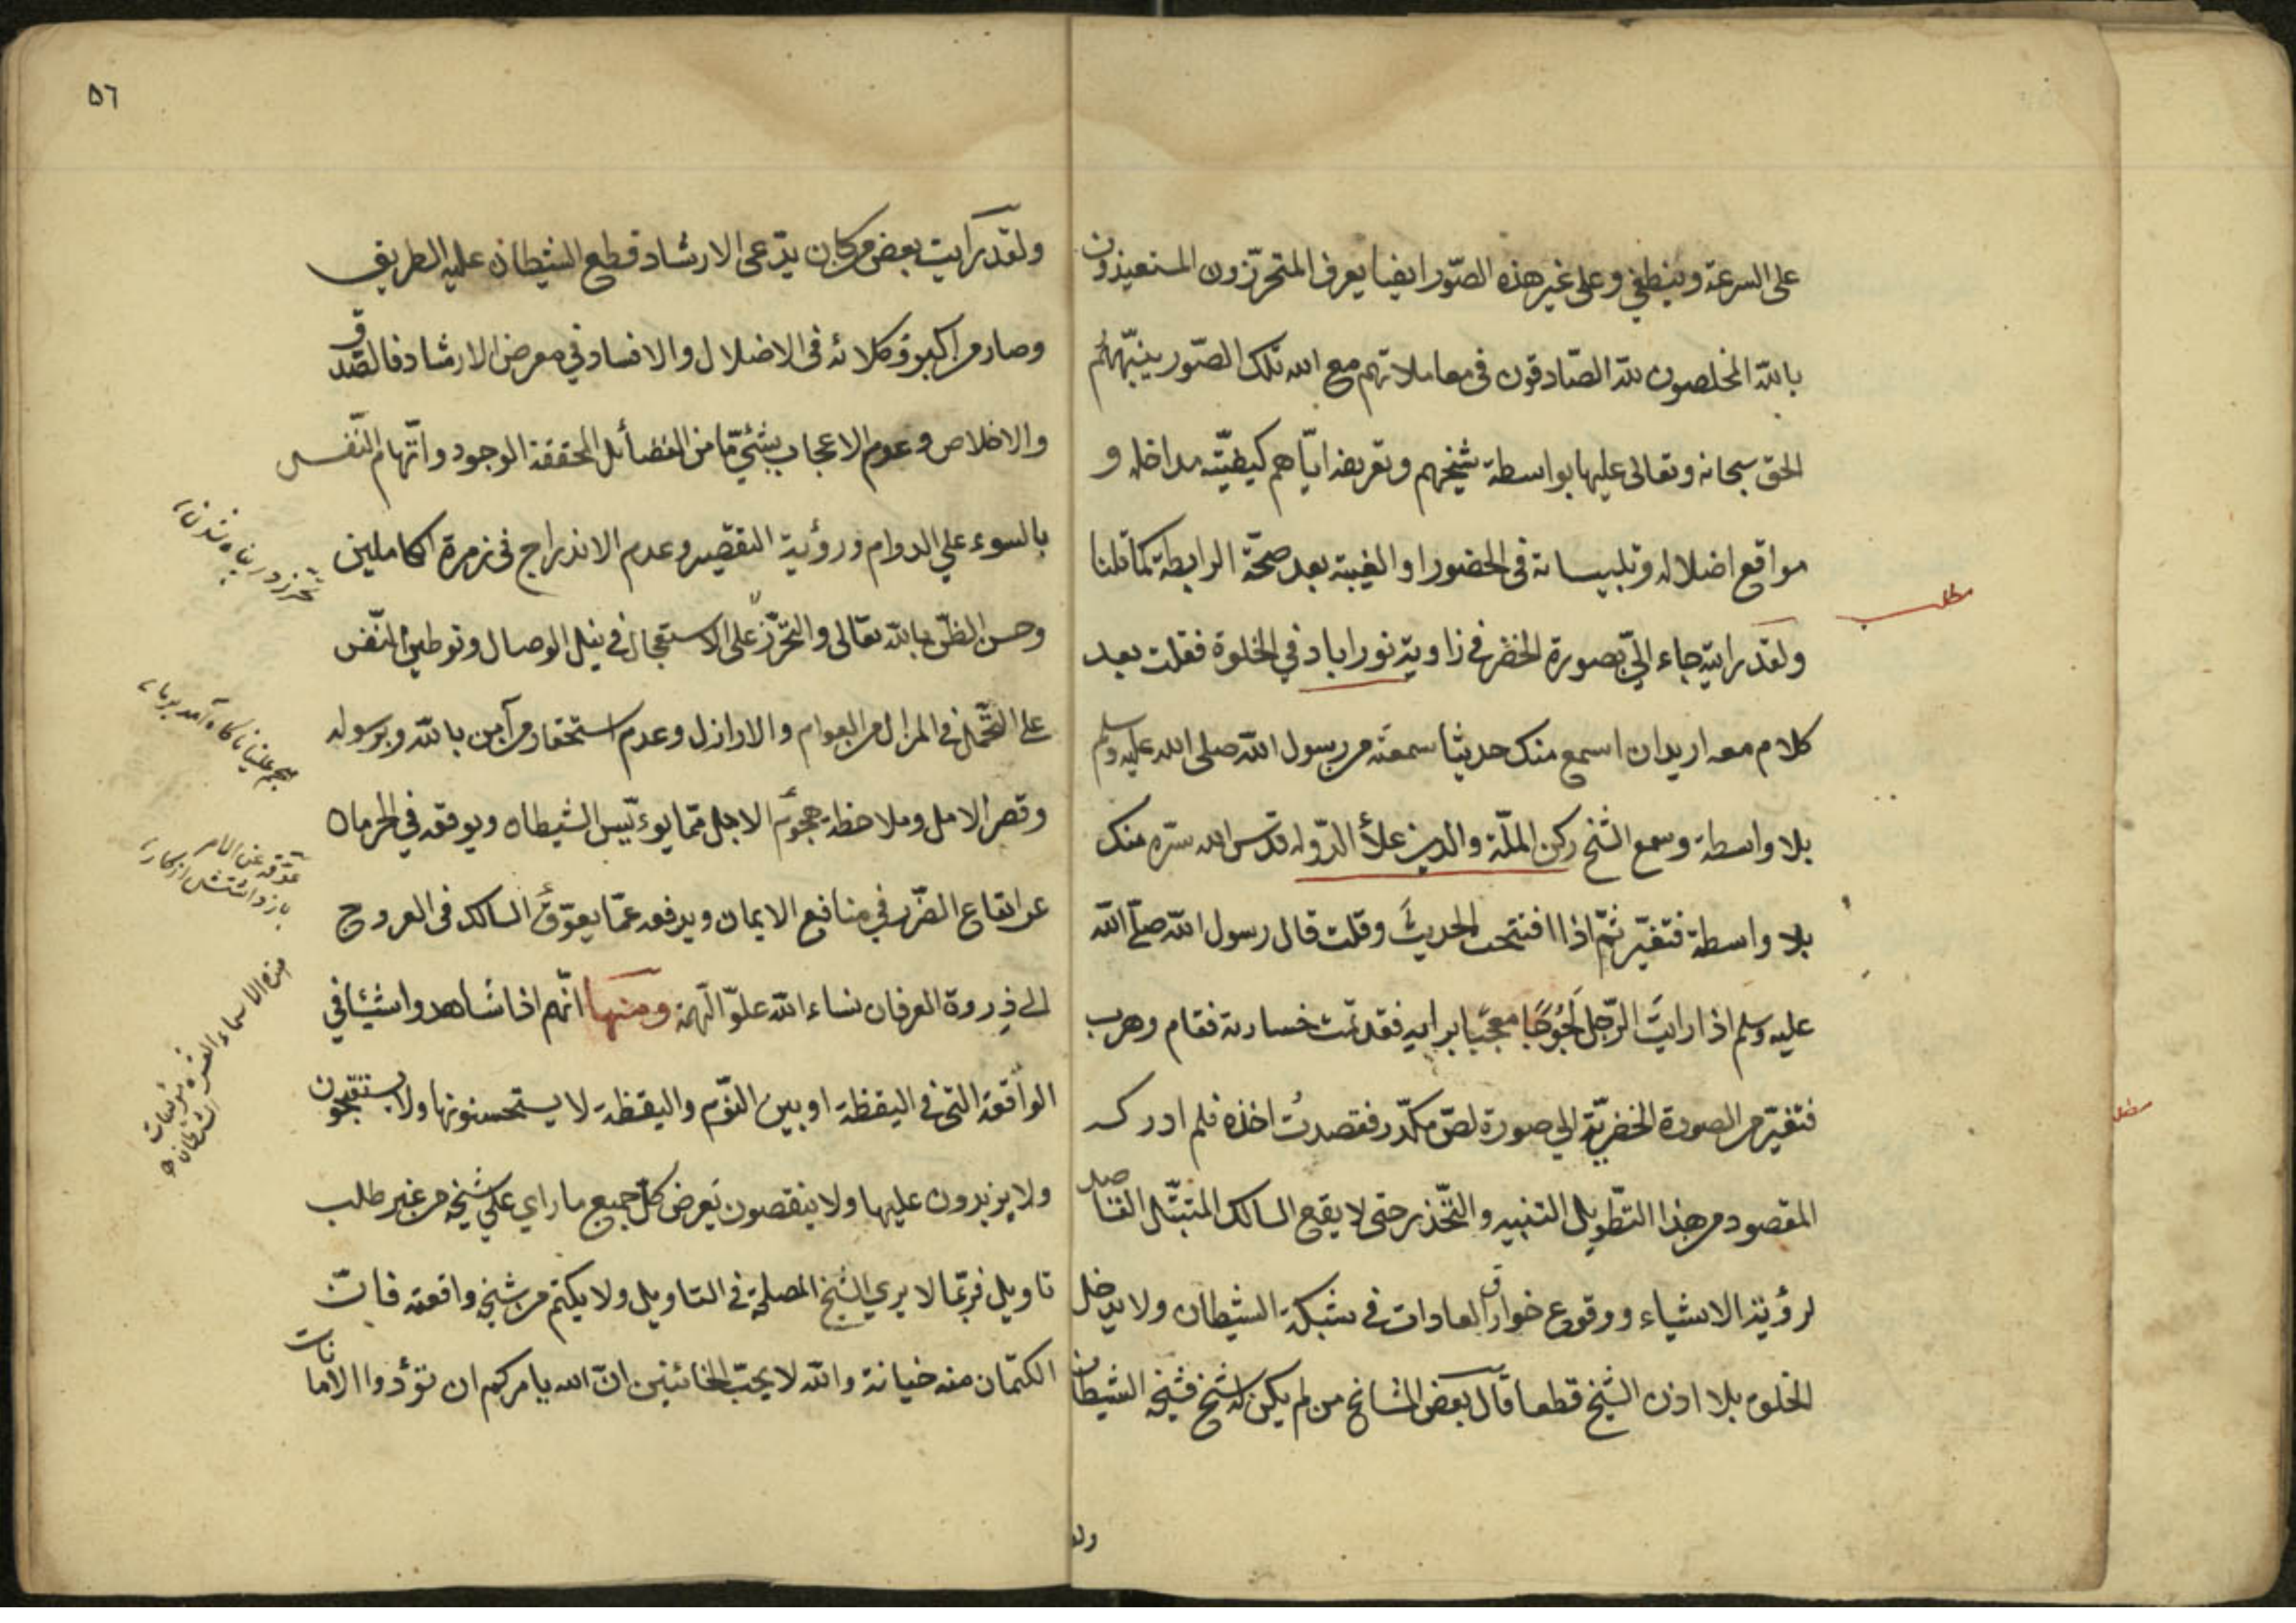 على السرعة وينطفي وعلى غير هذه الصّور ايضا يعرف المتحرّزون المستعيذون
بالله المخلصون لله الصّادقون في معاملاتهم مع الله تلك الصّور ينبّههم
الحق سبحانه وتعالى عليها بواسطة شيخهم وتعريفه ايّاهم كيفيّته مداخله و
مواقع اضلاله وتلبيساته في الحضور او الغيبة بعد صحّة الرابطة كما قلنا
مطلب
ولقد رايته جاء اليّ بصورة الخضر في زاوية نوراباد في الخلوة فقلت بعد
كلام معه اريد ان اسمع منك حديثا سمعته من رسول الله صلى الله عليه وسلم
بلا واسطة وسمع الشيخ ركن الملّة والدين علاء الدّوله قدس الله سرّه منك
بلا واسطة فتغيّر ثمّ اذا افتتحت الحديث وقلت قال رسول الله صلّى الله
عليه وسلم اذا رايت الرّجل لجوجًا معجبًا برايه فقد تمّت خسارته فقام وهرب
فتغيّر من الصورة الخضريّة الى صورة لصّ مكدّر فقصدتُ اخذه فلم ادركه
المقصود من هذا التّطويل التنبيه والتّحذير حتى لا يقع السالك المتبتّل القاصد
لرؤية الاشياء ووقوع خوارق العادات في شبكة الشيطان ولا يدخل
الخلوة بلا اذن الشيخ قطعا قال بعض المشايخ من لم يكن له شيخ فشيخه الشيطان
ولقد
٥٦
ولقد رايت بعض من كان يدّعى الارشاد قطع الشيطان عليه الطريق
وصار من اكبر وكلائه في الاضلال والافساد في معرض الارشاد فالصّدق
والاخلاص وعدم الاعجاب بشيء مّا من الفضائل المحققة الوجود واتّهام النّفس
بالسوء على الدوام ورؤية التقصير وعدم الاندراج في زمرة الكاملين
تحرّز در پناه شدن
وحسن الظّن بالله تعالى والتحرّز على الاستعجال في نيل الوصال وتوطين النّفس
على التّحمّل في المزال من العوام والاراذل وعدم استحقار من آمن بالله وبرسوله
هجم علينا ناكاه آمد بر ما
وقصر الامل وملاحظة هجوم الاجل ممّا يوءيّس الشيطان ويوقفه في الحرمان
عوّقه عن الامر
باز داشتش از كار
عن ايقاع الضّرر في منافع الايمان ويدفعه عمّا يعوّق السالك في العروج
الى ذروة العرفان نساء الله علوّ الهمة ومنها انّهم اذا شاهدوا شيئا في
هذه الاسماء العشرة مؤيسات الشيطان
الواقعة التى في اليقظة او بين النّوم واليقظة لا يستحسنونها ولا يستقبحون
ولا يزيدون عليها ولا ينقصون يعرض كلّ جميع ما راى على شيخه من غير طلب
تاويل فربّما لا يرى الشيخ المصلحة في التاويل ولا يكتم من شيخه واقعته فانّ
الكتمان منه خيانة والله لا يحبّ الخائنين انّ الله يامركم ان تؤدوا الامانات